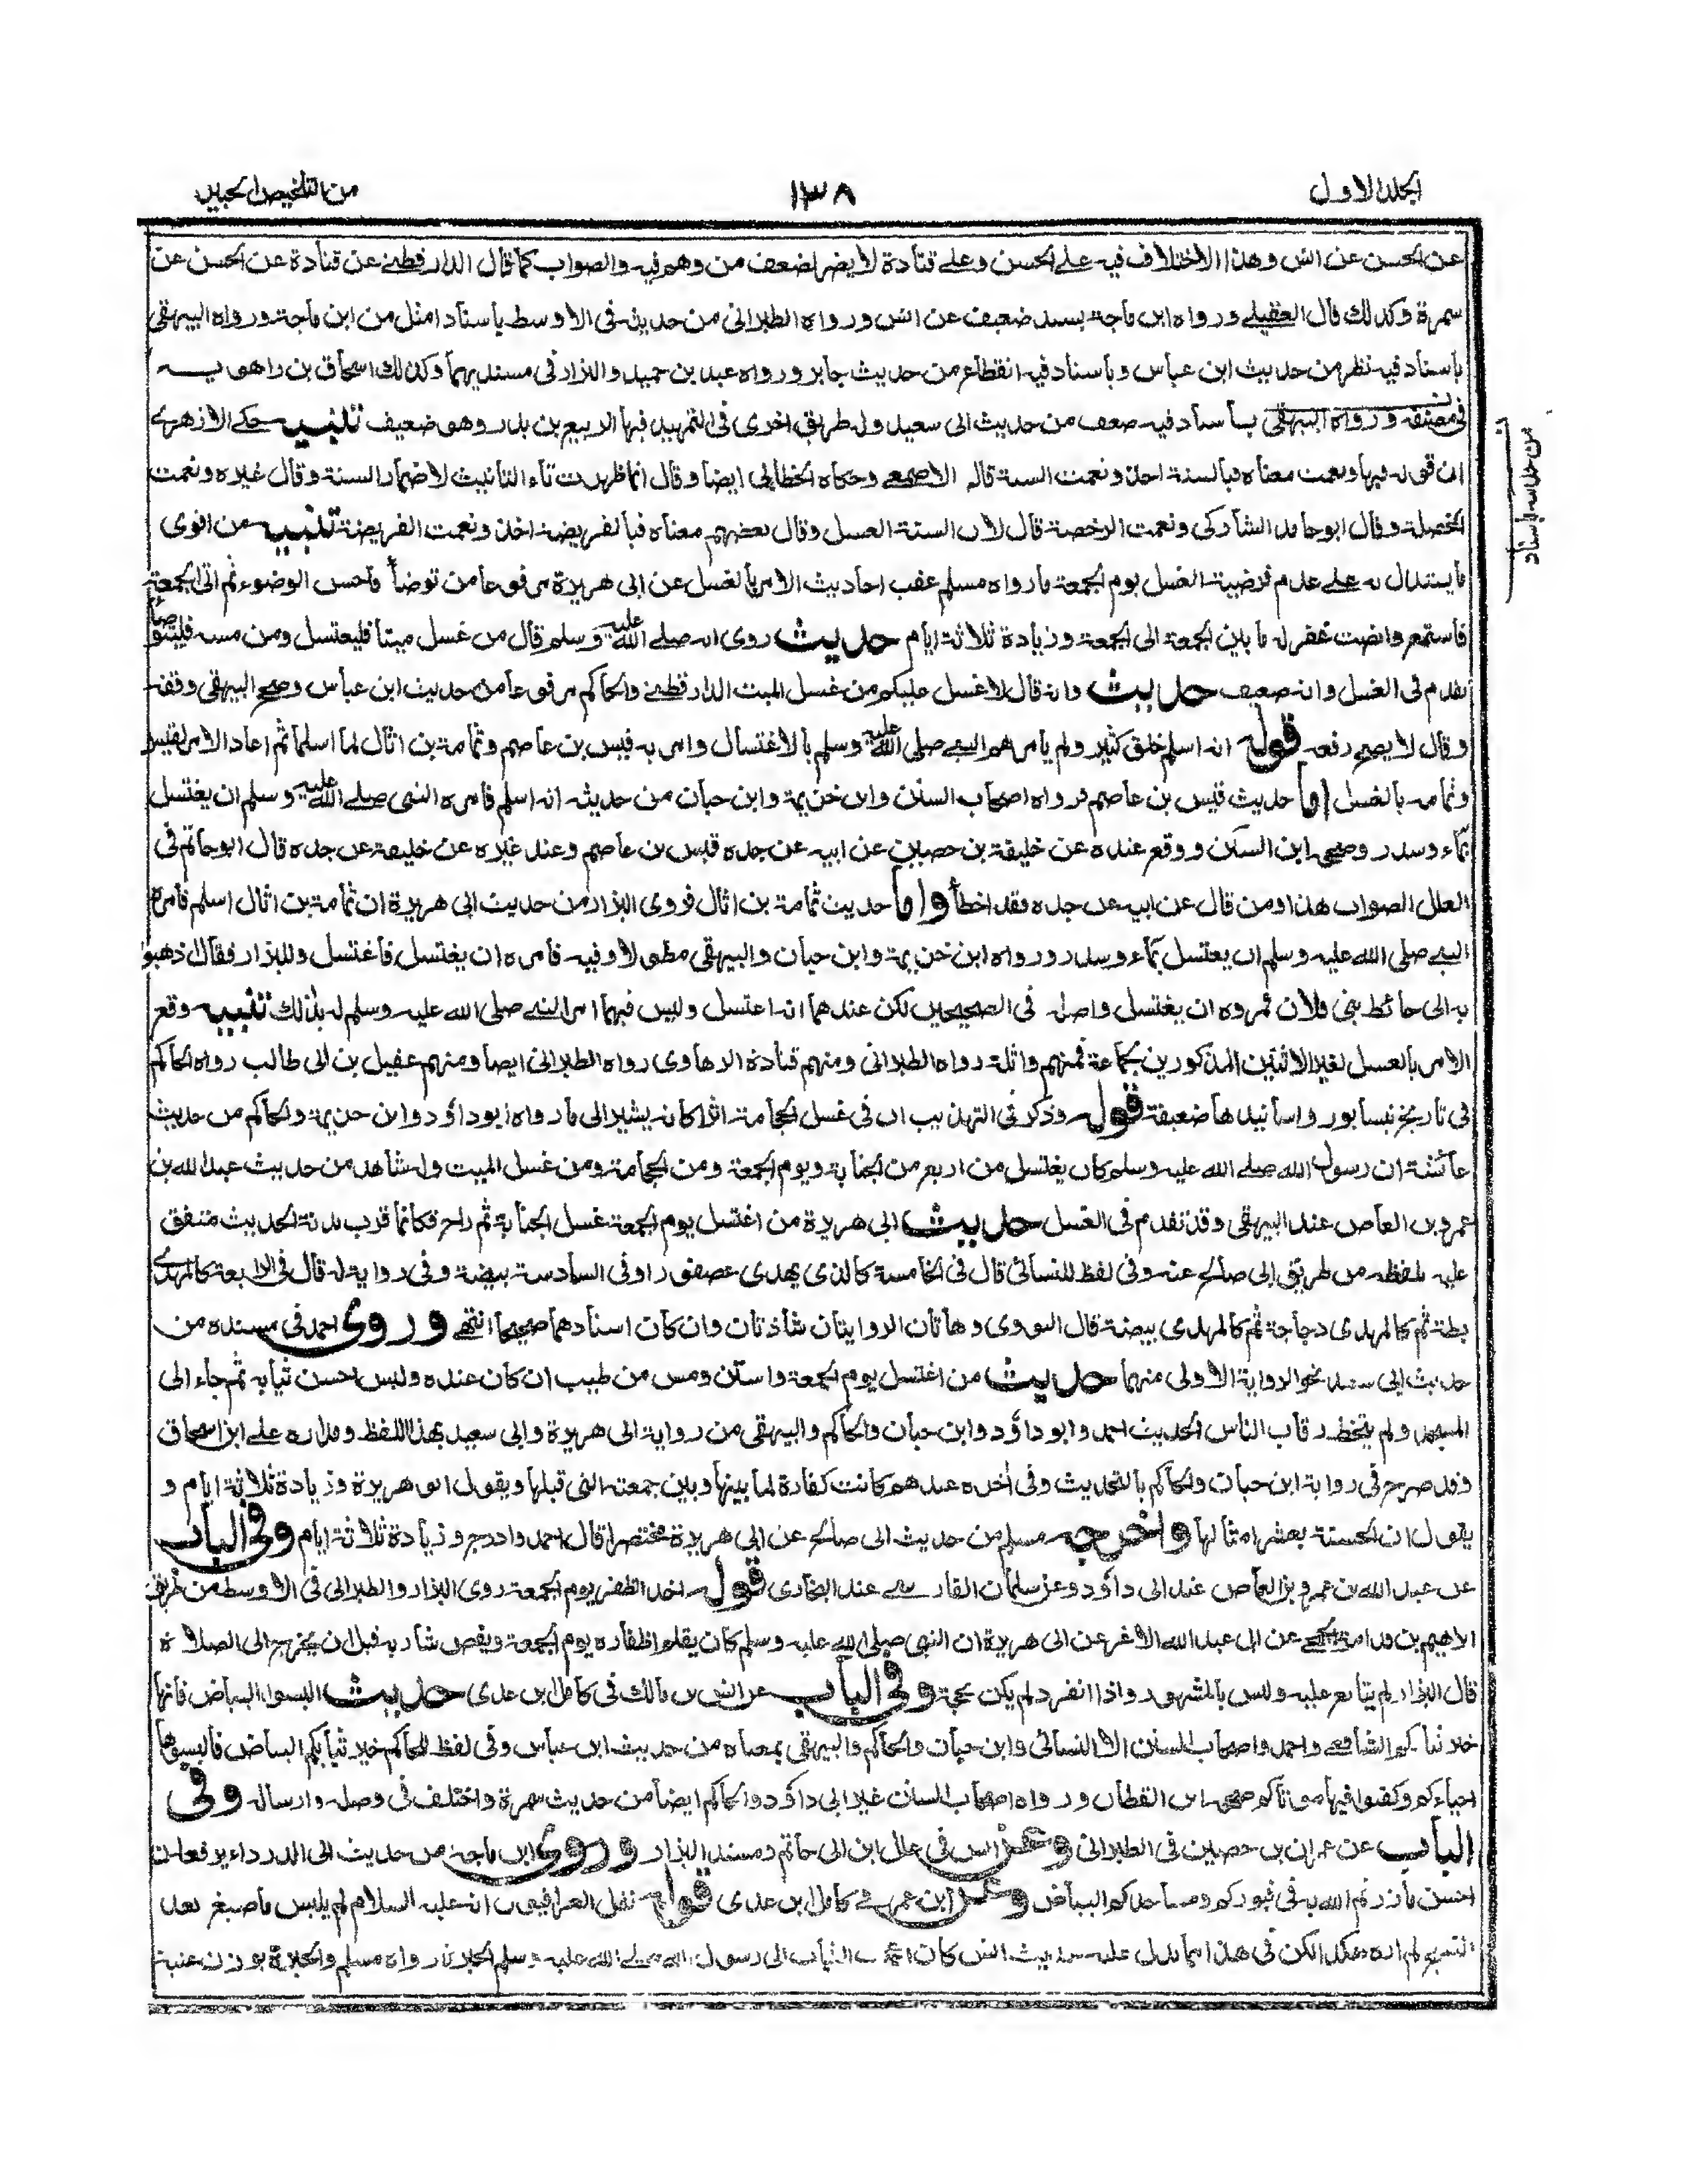 المجلد الاول
١٣٨
من التلخيص الحبير
عن الحسن عن انس وهذا الاختلاف فيه على الحسن وعلى قتادة لا يضر لضعف من وهم فيه والصواب كما قال الدارقطني عن قتادة عن الحسن عن
سمرة وكذلك قال العقيلي ورواه ابن ماجة بسند ضعيف عن انس ورواه الطبراني من حديثه في الاوسط بأسناد امثل من ابن ماجة ورواه البيهقي
بأسناد فيه نظر من حديث ابن عباس وبأسناد فيه انقطاع من حديث جابر ورواه عبد بن حميد والبزار في مسنديهما وكذلك اسحاق بن راهويه
في مصنفه ورواه البيهقي بأسناد فيه ضعف من حديث ابي سعيد وله طريق اخرى في التمهيد فيها الربيع بن بدر وهو ضعيف تنبيه حكى الازهري
ان قوله فبها ونعمت معناه فبالسنة اخذ ونعمت السنة قاله الاصمعي وحكاه الخطابي ايضا وقال انما ظهرت تاء التانيث لاضمار السنة وقال غيره ونعمت
الخصلة وقال ابو حامد الشاركي ونعمت الرخصة قال لان السنة الغسل وقال بعضهم معناه فبالفريضة اخذ ونعمت الفريضة تنبيه من اقوى
ما يستدل به على عدم فرضية الغسل يوم الجمعة ما رواه مسلم عقب احاديث الامر بالغسل عن ابي هريرة مرفوعا من توضأ فاحسن الوضوء ثم اتى الجمعة
فاستمع وانصت غفر له ما بين الجمعة الى الجمعة وزيادة ثلاثة ايام حديث روى انه صلى الله عليه وسلم قال من غسل ميتا فليغتسل ومن مسه فليتوضأ
تقدم في الغسل وانه ضعيف حديث وانه قال لا غسل عليكم من غسل الميت الدارقطني والحاكم مرفوعا من حديث ابن عباس وصحح البيهقي وقفه
وقال لا يصح رفعه قوله انه اسلم خلق كثير ولم يامرهم النبي صلى الله عليه وسلم بالاغتسال وامر به قيس بن عاصم وثمامة بن اثال لما اسلما ثم اعاد الامر لقيس
وثمامة بالغسل اما حديث قيس بن عاصم فرواه اصحاب السنن وابن خزيمة وابن حبان من حديثه انه اسلم فامره النبي صلى الله عليه وسلم ان يغتسل
بماء وسدر وصححه ابن السكن ووقع عنده عن خليفة بن حصين عن ابيه عن جده قيس بن عاصم وعند غيره عن خليفة عن جده قال ابو حاتم في
العلل الصواب هذا ومن قال عن ابيه عن جده فقد اخطأ واما حديث ثمامة بن اثال فروى البزار من حديث ابي هريرة ان ثمامة بن اثال اسلم فامره
النبي صلى الله عليه وسلم ان يغتسل بماء وسدر ورواه ابن خزيمة وابن حبان والبيهقي مطولا وفيه فامره ان يغتسل فاغتسل وللبزار فقال اذهبوا
به الى حائط بني فلان فمروه ان يغتسل واصله في الصحيحين لكن عندهما انه اغتسل وليس فيهما امر النبي صلى الله عليه وسلم له بذلك تنبيه وقع
الامر بالغسل لغير الاثنين المذكورين لجماعة فمنهم واثلة رواه الطبراني ومنهم قتادة الرهاوي رواه الطبراني ايضا ومنهم عقيل بن ابي طالب رواه الحاكم
في تاريخ نيسابور واسانيدها ضعيفة قوله وذكر في التهذيب ان في غسل الحجامة اثرا كانه يشير الى ما رواه ابوداؤد وابن خزيمة والحاكم من حديث
عائشة ان رسول الله صلى الله عليه وسلم كان يغتسل من اربع من الجنابة ويوم الجمعة ومن الحجامة ومن غسل الميت وله شاهد من حديث عبد الله بن
عمرو بن العاص عند البيهقي وقد تقدم في الغسل حديث ابي هريرة من اغتسل يوم الجمعة غسل الجنابة ثم راح فكانما قرب بدنة الحديث متفق
عليه بلفظه من طريق ابي صالح عنه وفي لفظ للنسائي قال في الخامسة كالذي يهدي عصفورا وفي السادسة بيضة وفي رواية له قال في الرابعة كالمهدي
بطة ثم كالمهدي دجاجة ثم كالمهدي بيضة قال النووي وهاتان الروايتان شاذتان وان كان اسنادهما صحيحا انتهى وروى احمد في مسنده من
حديث ابي سعيد نحو الرواية الاولى منهما حديث من اغتسل يوم الجمعة واستن ومس من طيب ان كان عنده ولبس احسن ثيابه ثم جاء الى
المسجد ولم يتخط رقاب الناس الحديث احمد وابو داؤد وابن حبان والحاكم والبيهقي من رواية ابي هريرة وابي سعيد بهذا اللفظ ومداره على ابن اسحاق
وقد صرح في رواية ابن حبان والحاكم بالتحديث وفي اخره عندهم كانت كفارة لما بينها وبين جمعته التي قبلها ويقول ابو هريرة وزيادة ثلاثة ايام و
يقول ان الحسنة بعشر امثالها واخرجه مسلم من حديث ابي صالح عن ابي هريرة مختصرا قال احمد وادرج وزيادة ثلاثة ايام وفي الباب
عن عبد الله بن عمرو بن العاص عند ابي داؤد وعن سلمان الفارسي عند البخاري قوله اخذ الظفر يوم الجمعة روى البزار والطبراني في الاوسط من طريق
ابراهيم بن قدامة الجمحي عن ابي عبد الله الاغر عن ابي هريرة ان النبي صلى الله عليه وسلم كان يقلم اظفاره يوم الجمعة ويقص شاربه قبل ان يخرج الى الصلاة
قال البزار لم يتابع عليه وليس بالمشهور واذا انفرد لم يكن بحجة وفي الباب عن انس بن مالك في كامل ابن عدي حديث البسوا البياض فانها
خير ثيابكم الشافعي واحمد واصحاب السنن الا النسائي وابن حبان والحاكم والبيهقي بمعناه من حديث ابن عباس وفي لفظ للحاكم خير ثيابكم البياض فالبسوها
احياءكم وكفنوا فيها موتاكم صححه ابن القطان ورواه اصحاب السنن غير ابي داؤد والحاكم ايضا من حديث سمرة واختلف في وصله وارساله وفي
الباب عن عمران بن حصين في الطبراني وعن انس في علل ابن ابي حاتم ومسند البزار وروى ابن ماجة من حديث ابي الدرداء يرفعه ان
احسن ما زرتم الله به في قبوركم ومساجدكم البياض وعن ابن عمر في كامل ابن عدي قوله نقل العراقيون انه عليه السلام لم يلبس ما صبغ بعد
النسج لم اره هكذا لكن في هذا ما يدل عليه حديث انس كان احب الثياب الى رسول الله صلى الله عليه وسلم الحبرة رواه مسلم والحبرة بوزن عنبة
من حديثه بأسناد